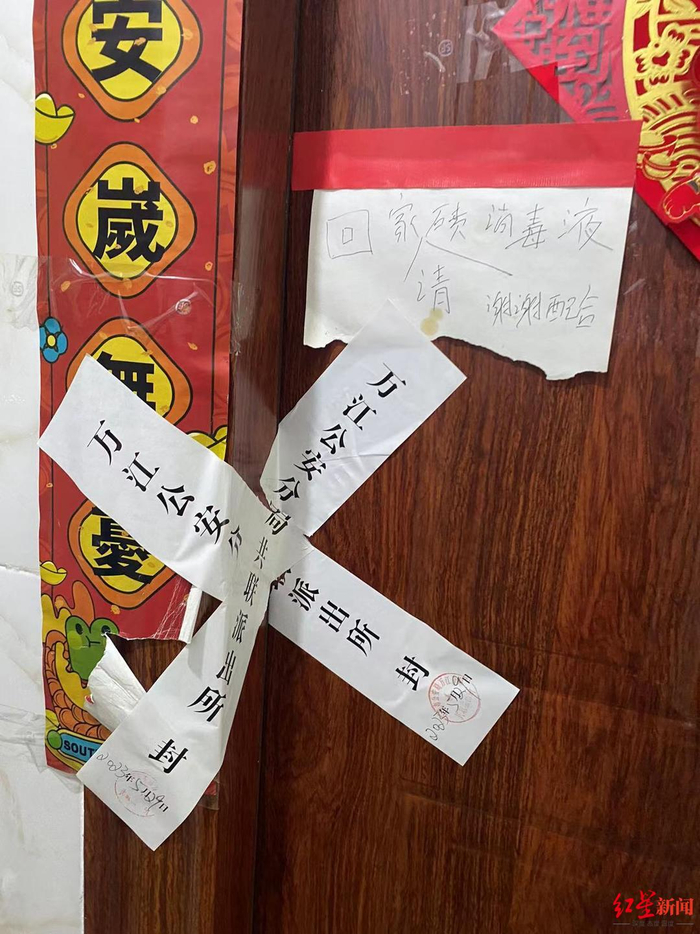 安歲無憂
回家喷消毒液
请 谢谢配合
万江公安分局共联派出所 封
2023年5月29日
万江公安分 派出所 封
2023年5月29日
SOUT
红星新闻